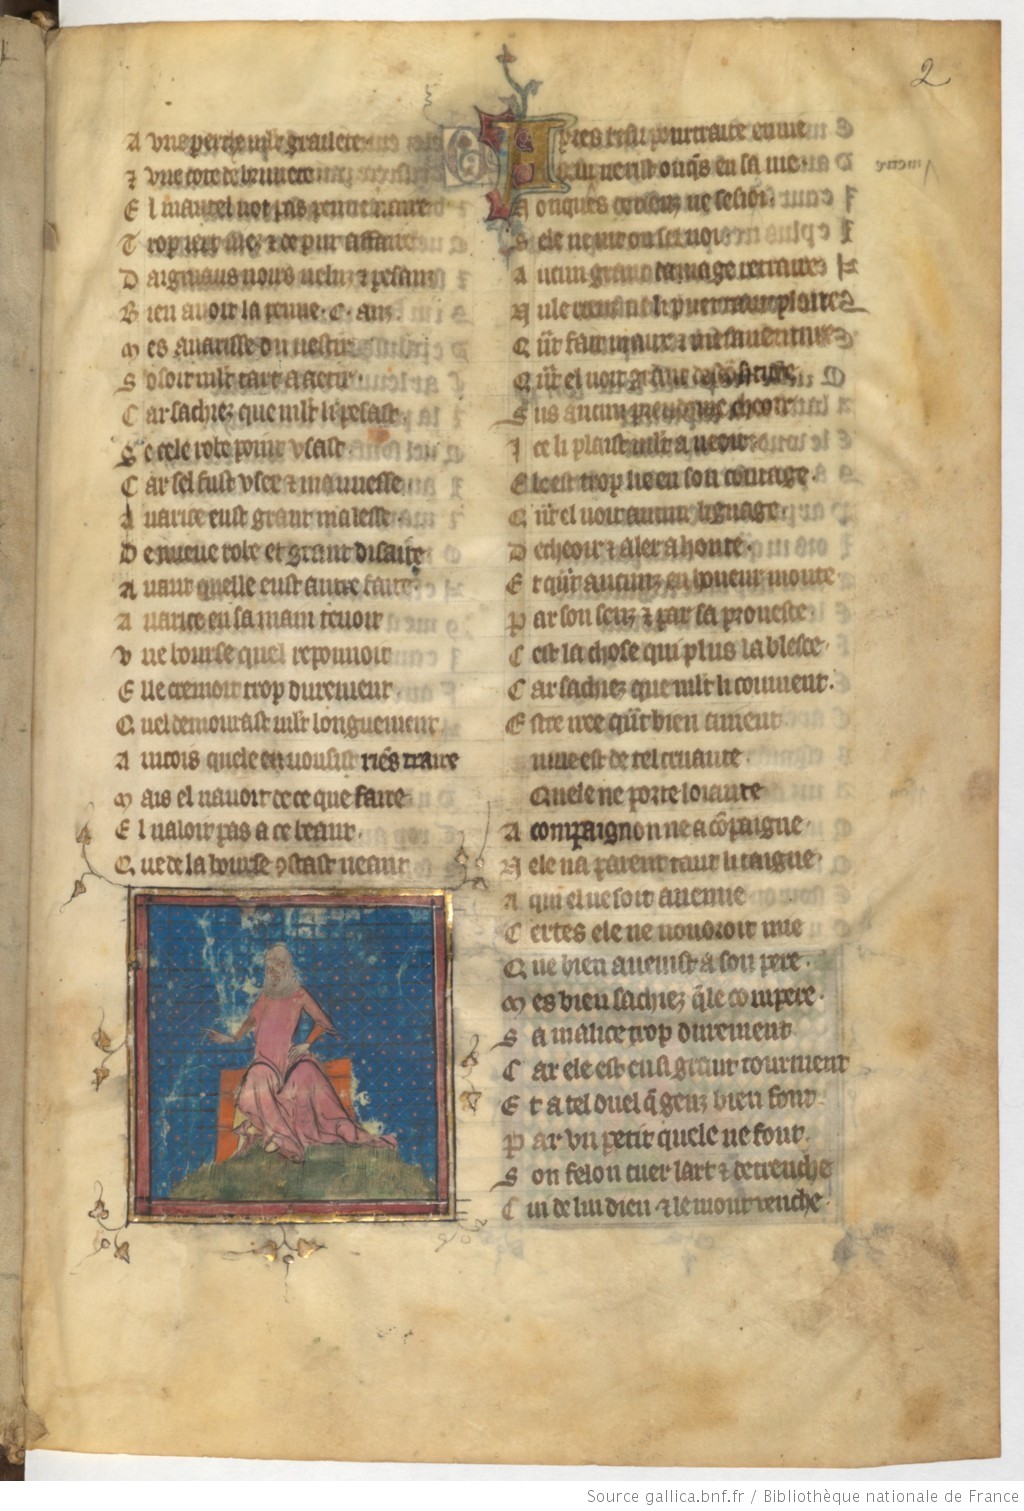 2
A une perche mlt graillete
⁊ une cote de brunete
E l mantel not pas penne vaire
D aigniaus noirs velus ⁊ pesanz
B ien avoit la penne .C. anz
M es avarisse du vestir
S osoit mlt tart a
C ar sachiez que mlt li pesast
S e cele robe point usast
C ar sel fust usee ⁊ mauvesse
A varice eust grant malesse
D e nueve robe et grant disaite
A vant quelle eust autre faite
A varice en sa main tenoit
U ne bourse quel reponnoit
E lle cremoit trop durement
Q uel demourast mlt longuement
A incois quele en voussist riens traire
M ais el navoit de ce que faire
E l naloit pas a ce beant
Q ue de la bourse ostast neant
A pres refu pourtraite envie
Q ui ne rist onqs en sa vie
N onques de riens ne
S ele ne vit ou
A ucun grant damage retraire
N ule li puet tant plaire
Q nt fait maux ⁊ mesaventure
Q nt el voit grant
S us aucun preudome cheoir
I ce li plaist mlt a veoir
E le est trop lie en son courage
Q nt el voit aucun lignage
D echeoir ⁊ aler a honte
E t qnt aucunz en honeur monte
P ar son senz ⁊ par sa proueste
C est la chose qui plus la blesce
C ar sachiez que mlt li couvient
E stre iree qnt bien avient
nvie est de tel cruaute
Quele ne porte loiaute
A compaignon ne a copaigne
N ele na parent tant li taigne
A qui el ne soit anemie
C ertes ele ne voudroit mie
Q ue bien avenist a son pere
M es bien sachiez qle compere
S a malice trop durement
C ar ele est en si grant tourment
E t a tel duel q genz bien font
P ar un petit quele ne font
S on felon cuer lart ⁊ detrenche
C ui de lui dieu ⁊ le mont venche
Source gallica.bnf.fr / Bibliothèque nationale de France